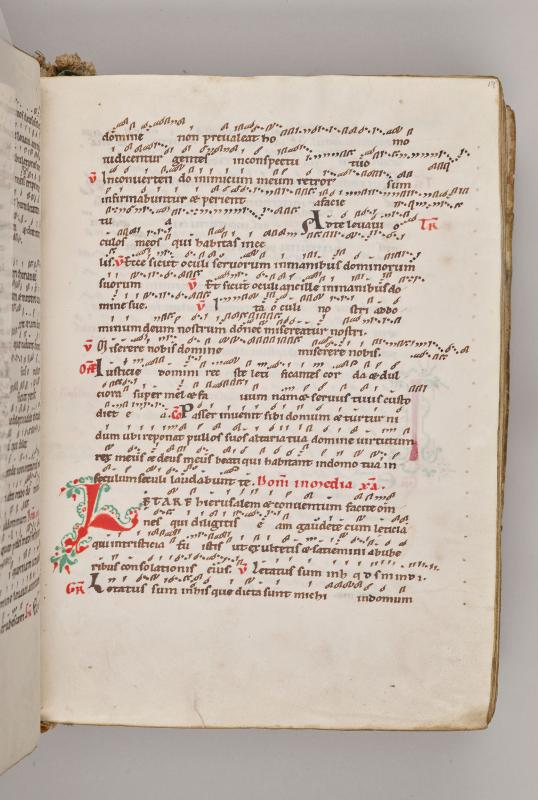 domine non prevaleat ho mo
iudicentur gentes inconspectu tuo
V Inconvertendo inimicum meum retror sum
infirmabuntur & perient afacie
tu a Adte levavi o TR
culos meos qui habitas ince
lis V Ecce sicut oculi servorum inmanibus dominorum
suorum V Et sicut oculi ancille inmanibus do
mine sue. V Ita oculi no stri addo
minum deum nostrum donec misereatur nostri.
V Miserere nobis domine miserere nobis.
Iusticie domini re ste leti ficantes cor da & dul
ciora super mel & fa vum nam & servus tuus custo
diet e a. Co Passer invenit sibi domum & turtur ni
dum ubi reponat pullos suos altaria tua domine virtutum
rex meus & deus meus beati qui habitant indomo tua in
seculum seculi laudabunt te. Dom in media xla.
LETARE hierusalem & conventum facite om
nes qui diligitis e am gaudete cum leticia
qui intristicia fu istis ut exultetis & satiemini abube
ribus consolationis vestre. V Letatus sum inh q d s m in d i.
GR Letatus sum inhis que dicta sunt michi indomum